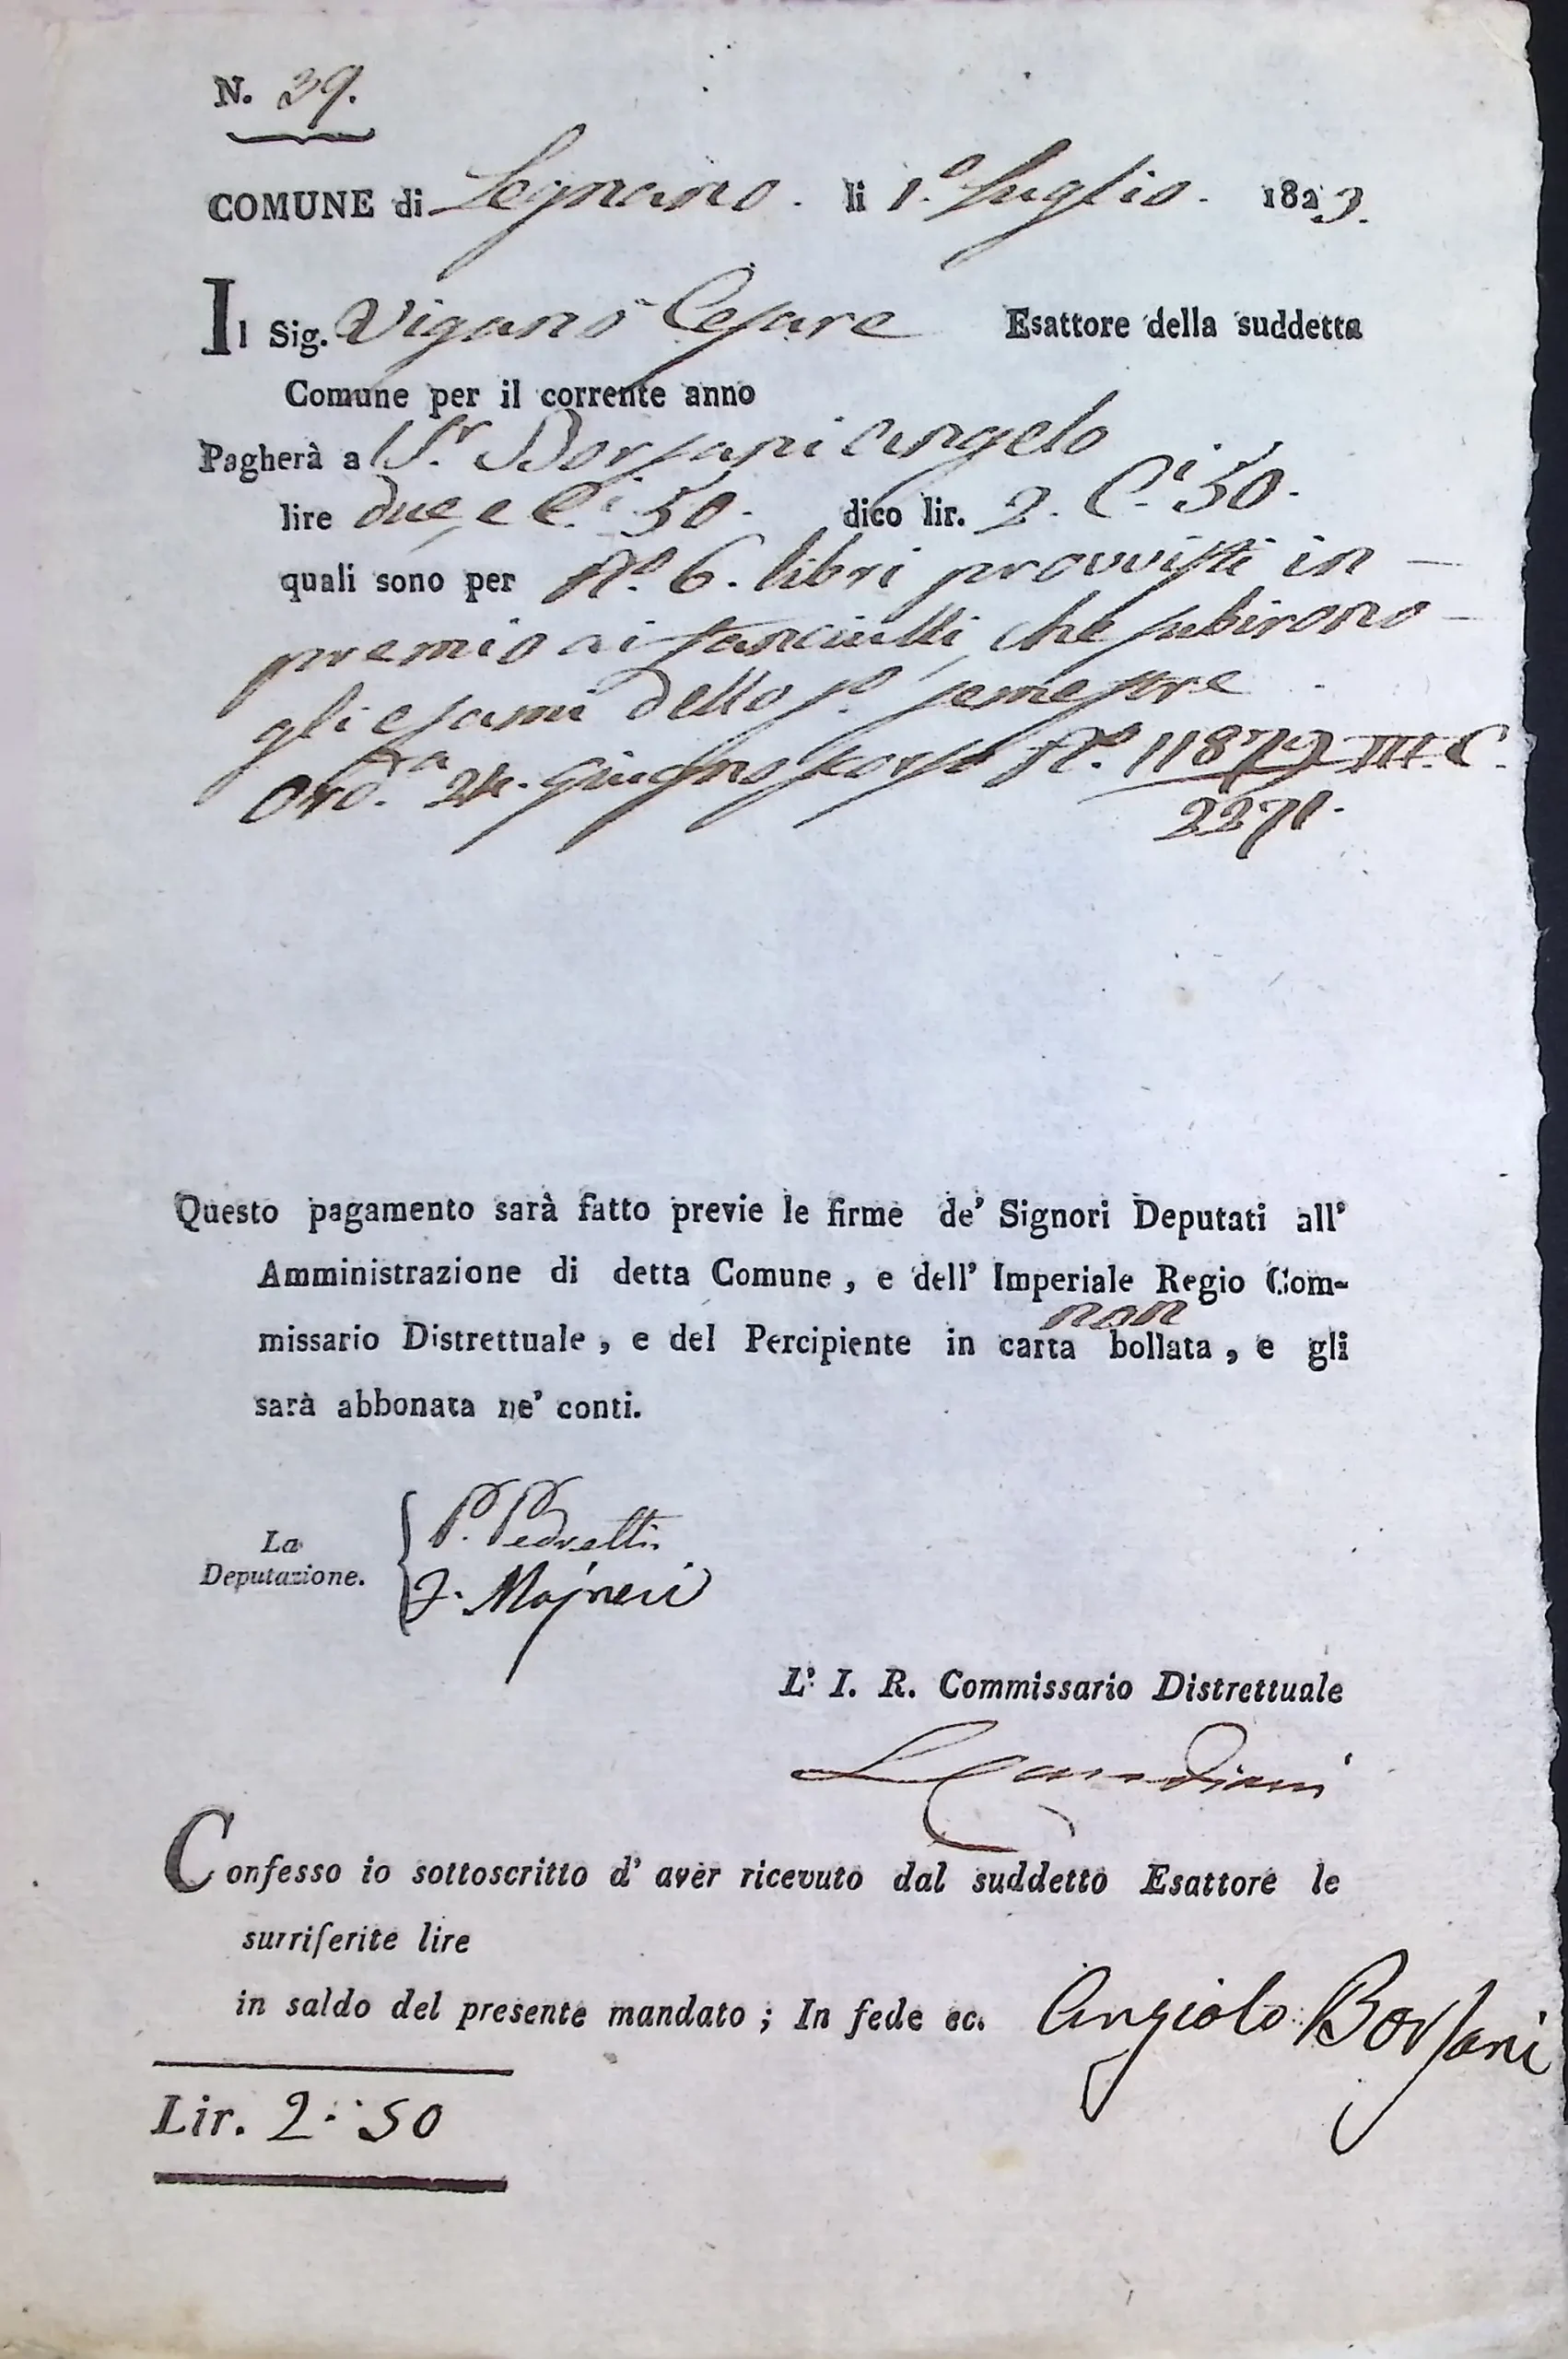 N. 39.
COMUNE di Legnano. li 1.º Luglio. 1823.
Il Sig. Viganò Cesare Esattore della suddetta
Comune per il corrente anno
Pagherà a Sr. Borsani Angelo
lire due, e C.i 50. dico lir. 2. C.i 50.
quali sono per N.º 6. libri provvisti in
premio ai fanciulli, che subirono
gli esami dello p.º semestre
Ord.a 24. Giugno scorso N.º 11879 III. C.
2271.
Questo pagamento sarà fatto previe le firme de' Signori Deputati all'
Amministrazione di detta Comune, e dell' Imperiale Regio Com-
non
missario Distrettuale, e del Percipiente in carta bollata, e gli
sarà abbonata ne' conti.
La
Deputazione.
P. Pedretti
F. Majneri
L' I. R. Commissario Distrettuale
Confesso io sottoscritto d' aver ricevuto dal suddetto Esattore le
surriferite lire
in saldo del presente mandato; In fede ec. Angiolo Borsani
Lir. 2:50